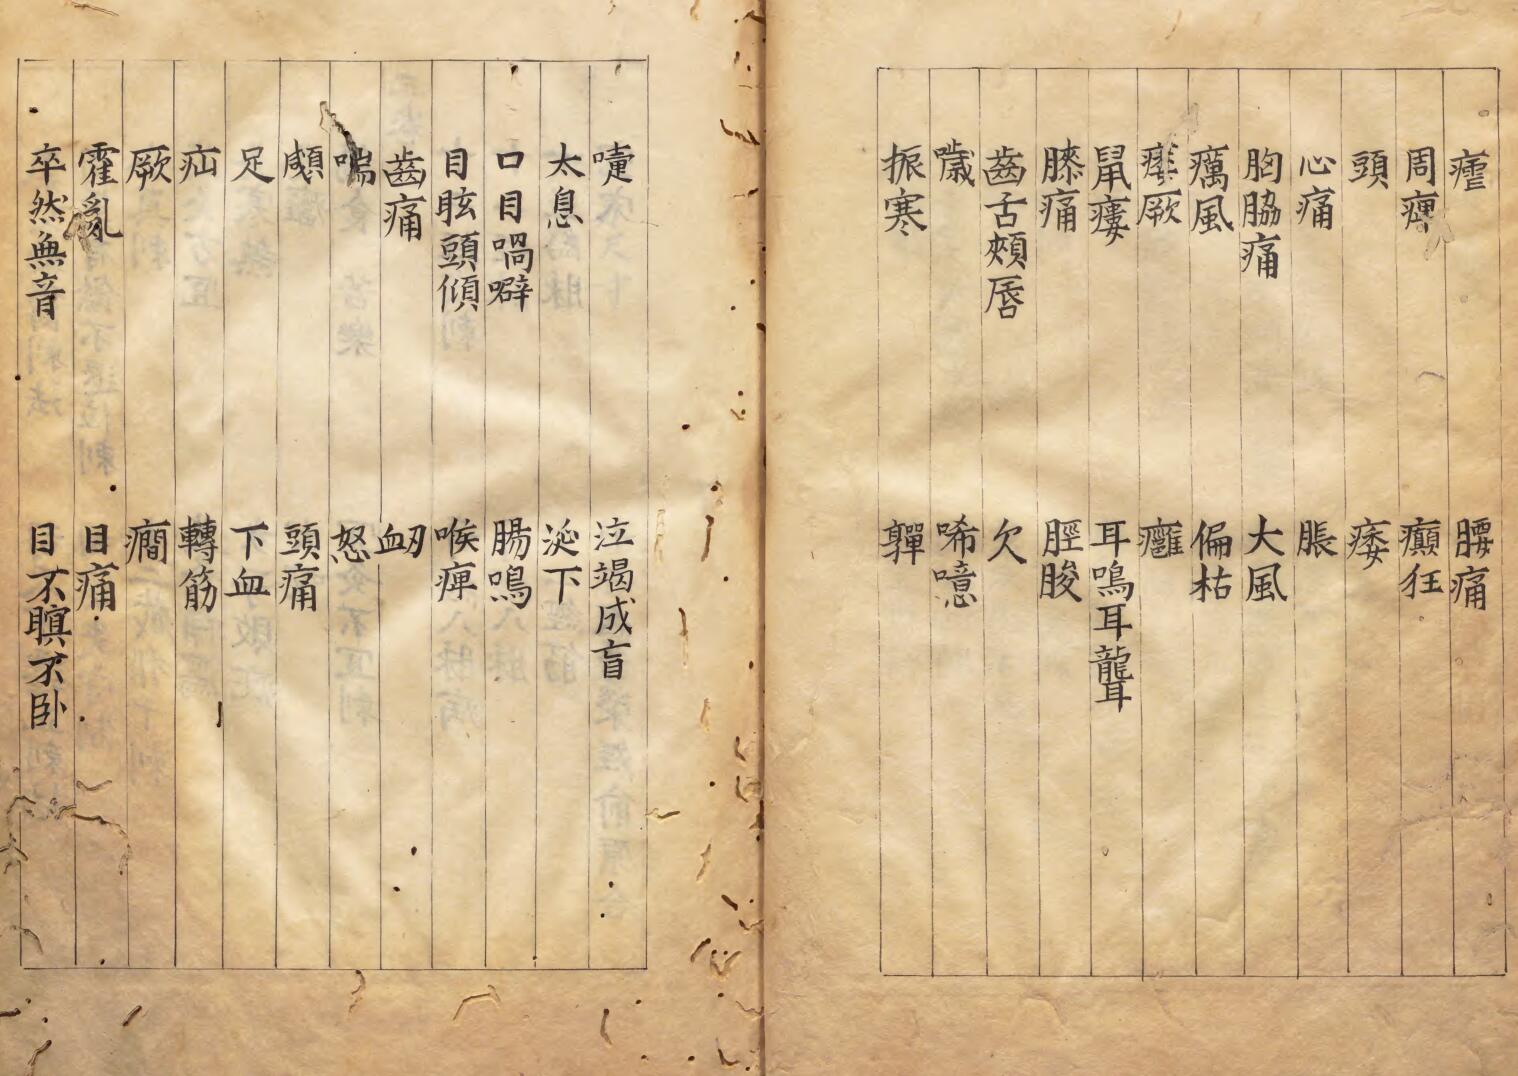 瘧 腰痛
周痹 癲狂
頭 痿
心痛 脹
胸脇痛 大風
癘風 偏枯
痿厥 癰
鼠瘻 耳鳴耳聾
膝痛 脛朘
齒舌頰唇 欠
噦 唏噫
振寒 嚲
嚏 泣竭成盲
太息 涎下
口目喎噼 腸鳴
目眩頭傾 喉痺
齒痛 衂
喘 怒
顑 頭痛
足 下血
疝 轉筋
厥 癇
霍亂 目痛
卒然無音 目不瞑不卧